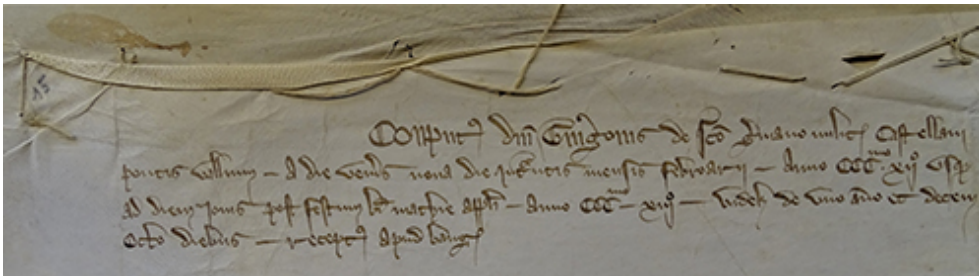 15
Comput(us) d(omi)ni Guigonis de s(an)c(t)o Germano milit(is) Castellani
pontis – a die ven(er)is nona die mensis februarii – Anno CCC^mo xii^o usq(ue)
ad diem iovis post festum b(eat)i mathie ap(osto)li – anno CCC^mo xiii^o – videl(icet) de uno an(n)o et decem
octo diebus – recept(us) apud baug(iacum)